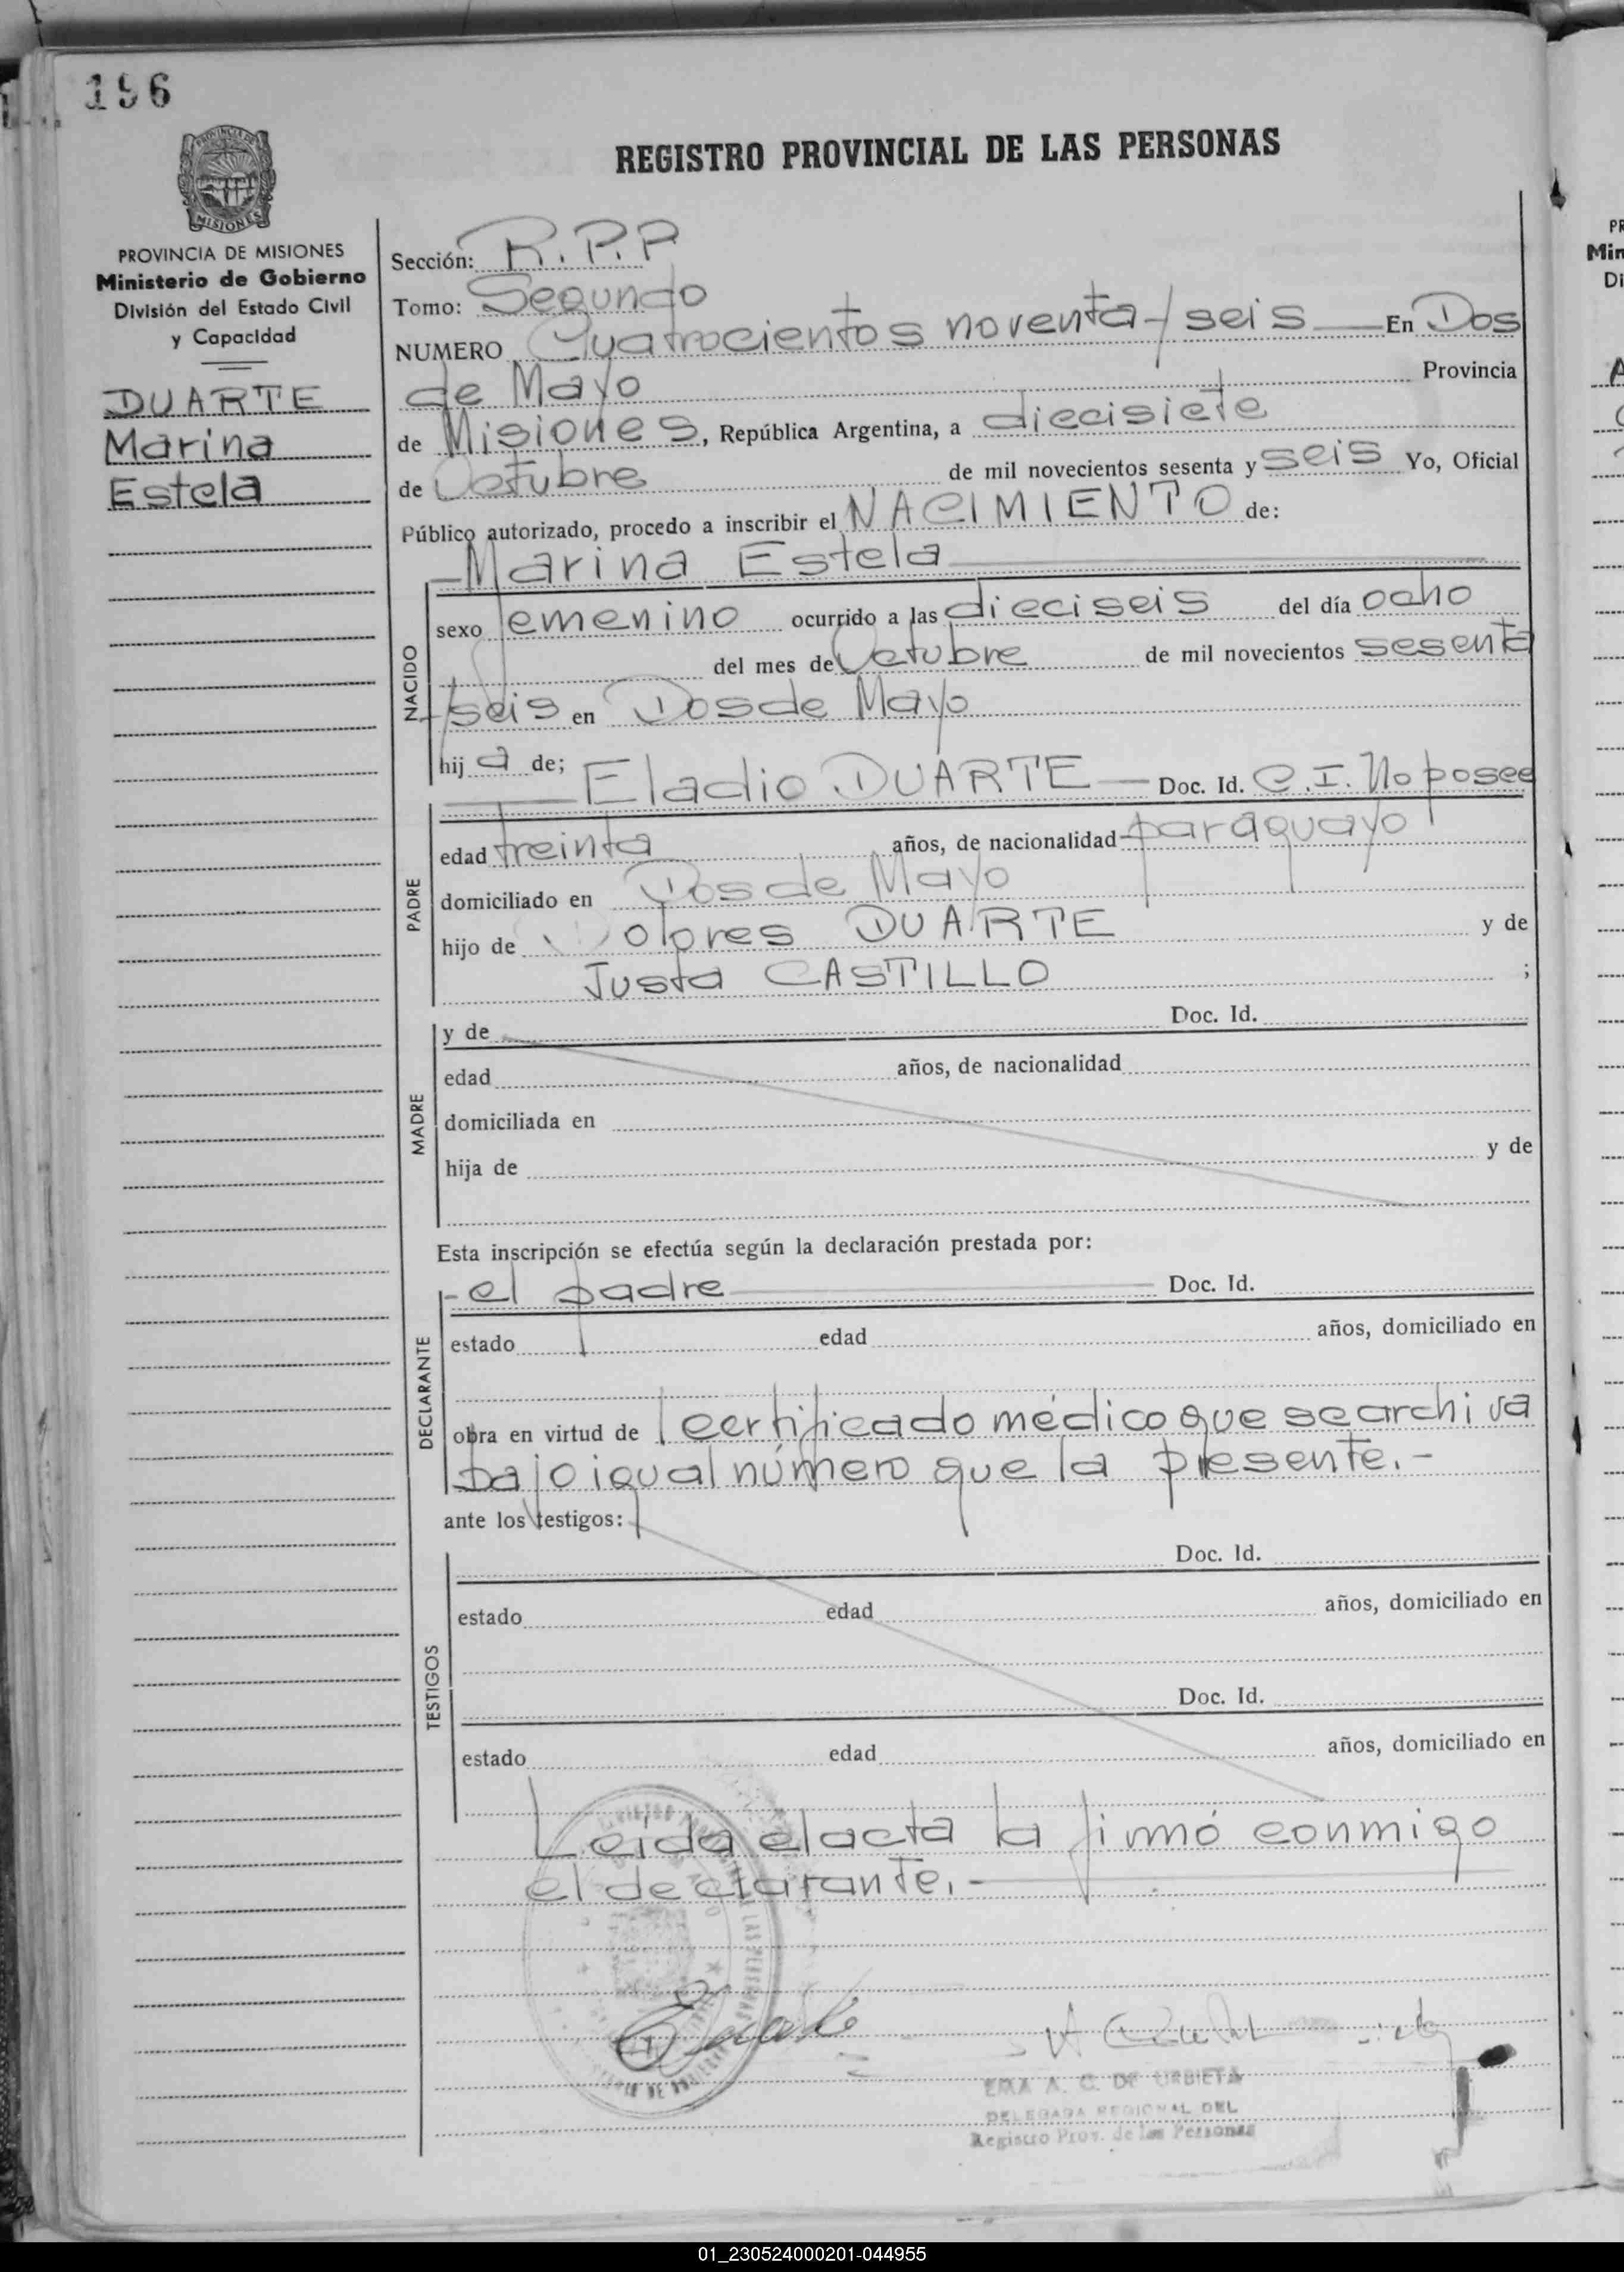 196
REGISTRO PROVINCIAL DE LAS PERSONAS
PROVINCIA DE MISIONES
Ministerio de Gobierno
División del Estado Civil
y Capacidad
DUARTE
Marina
Estela
Sección: R.P.P
Tomo: Segundo
NUMERO Cuatrocientos noventa y seis En Dos
de Mayo Provincia
de Misiones, República Argentina, a diecisiete
de Octubre de mil novecientos sesenta y seis Yo, Oficial
Público autorizado, procedo a inscribir el NACIMIENTO de:
Marina Estela
NACIDO
sexo femenino ocurrido a las dieciseis del día ocho
del mes de Octubre de mil novecientos sesenta
y seis en Dos de Mayo
hij a de; Eladio DUARTE Doc. Id. C.I. No posee
PADRE
edad treinta años, de nacionalidad paraguayo
domiciliado en Dos de Mayo
hijo de Dolores DUARTE y de
Justa CASTILLO ;
MADRE
y de Doc. Id.
edad años, de nacionalidad
domiciliada en
hija de y de
Esta inscripción se efectúa según la declaración prestada por:
DECLARANTE
- el padre Doc. Id.
estado edad años, domiciliado en
obra en virtud de certificado médico que se archiva
bajo igual número que la presente.-
ante los testigos:
TESTIGOS
Doc. Id.
estado edad años, domiciliado en
Doc. Id.
estado edad años, domiciliado en
Leída el acta la firmó conmigo
el declarante.-
A. C. DE URBIETA
DELEGADA REGIONAL DEL
Registro Prov. de las Personas
01_230524000201-044955